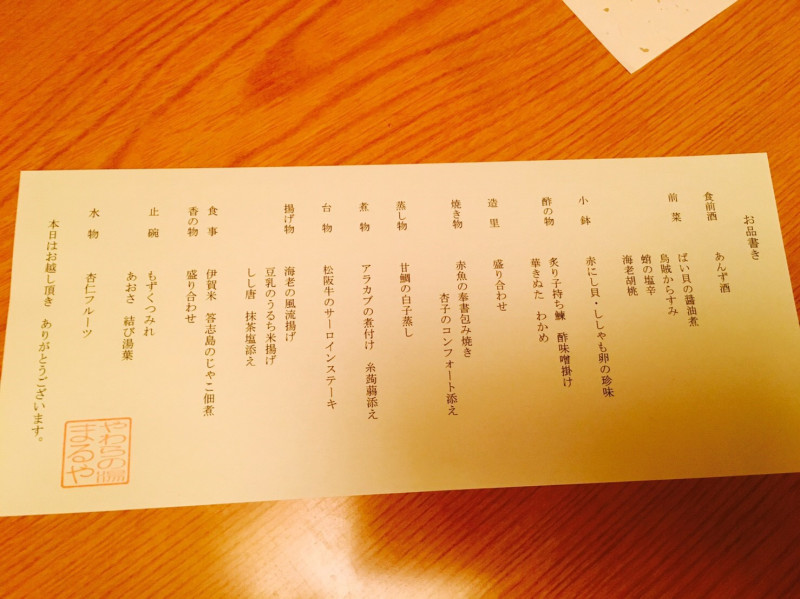 お品書き
食前酒 あんず酒
前菜 ばい貝の醤油煮
烏賊からすみ
蛸の塩辛
海老胡桃
小鉢 赤にし貝・ししゃも卵の珍味
酢の物 炙り子持ち鰊 酢味噌掛け
華きぬた わかめ
造里 盛り合わせ
焼き物 赤魚の奉書包み焼き
杏子のコンフォート添え
蒸し物 甘鯛の白子蒸し
煮物 アラカブの煮付け 糸蒟蒻添え
台物 松阪牛のサーロインステーキ
揚げ物 海老の風流揚げ
豆乳のうるち米揚げ
しし唐 抹茶塩添え
食事 伊賀米 答志島のじゃこ佃煮
香の物 盛り合わせ
止碗 もずくつみれ
あおさ 結び湯葉
水物 杏仁フルーツ
本日はお越し頂き ありがとうございます。
やわらの宿
まるや